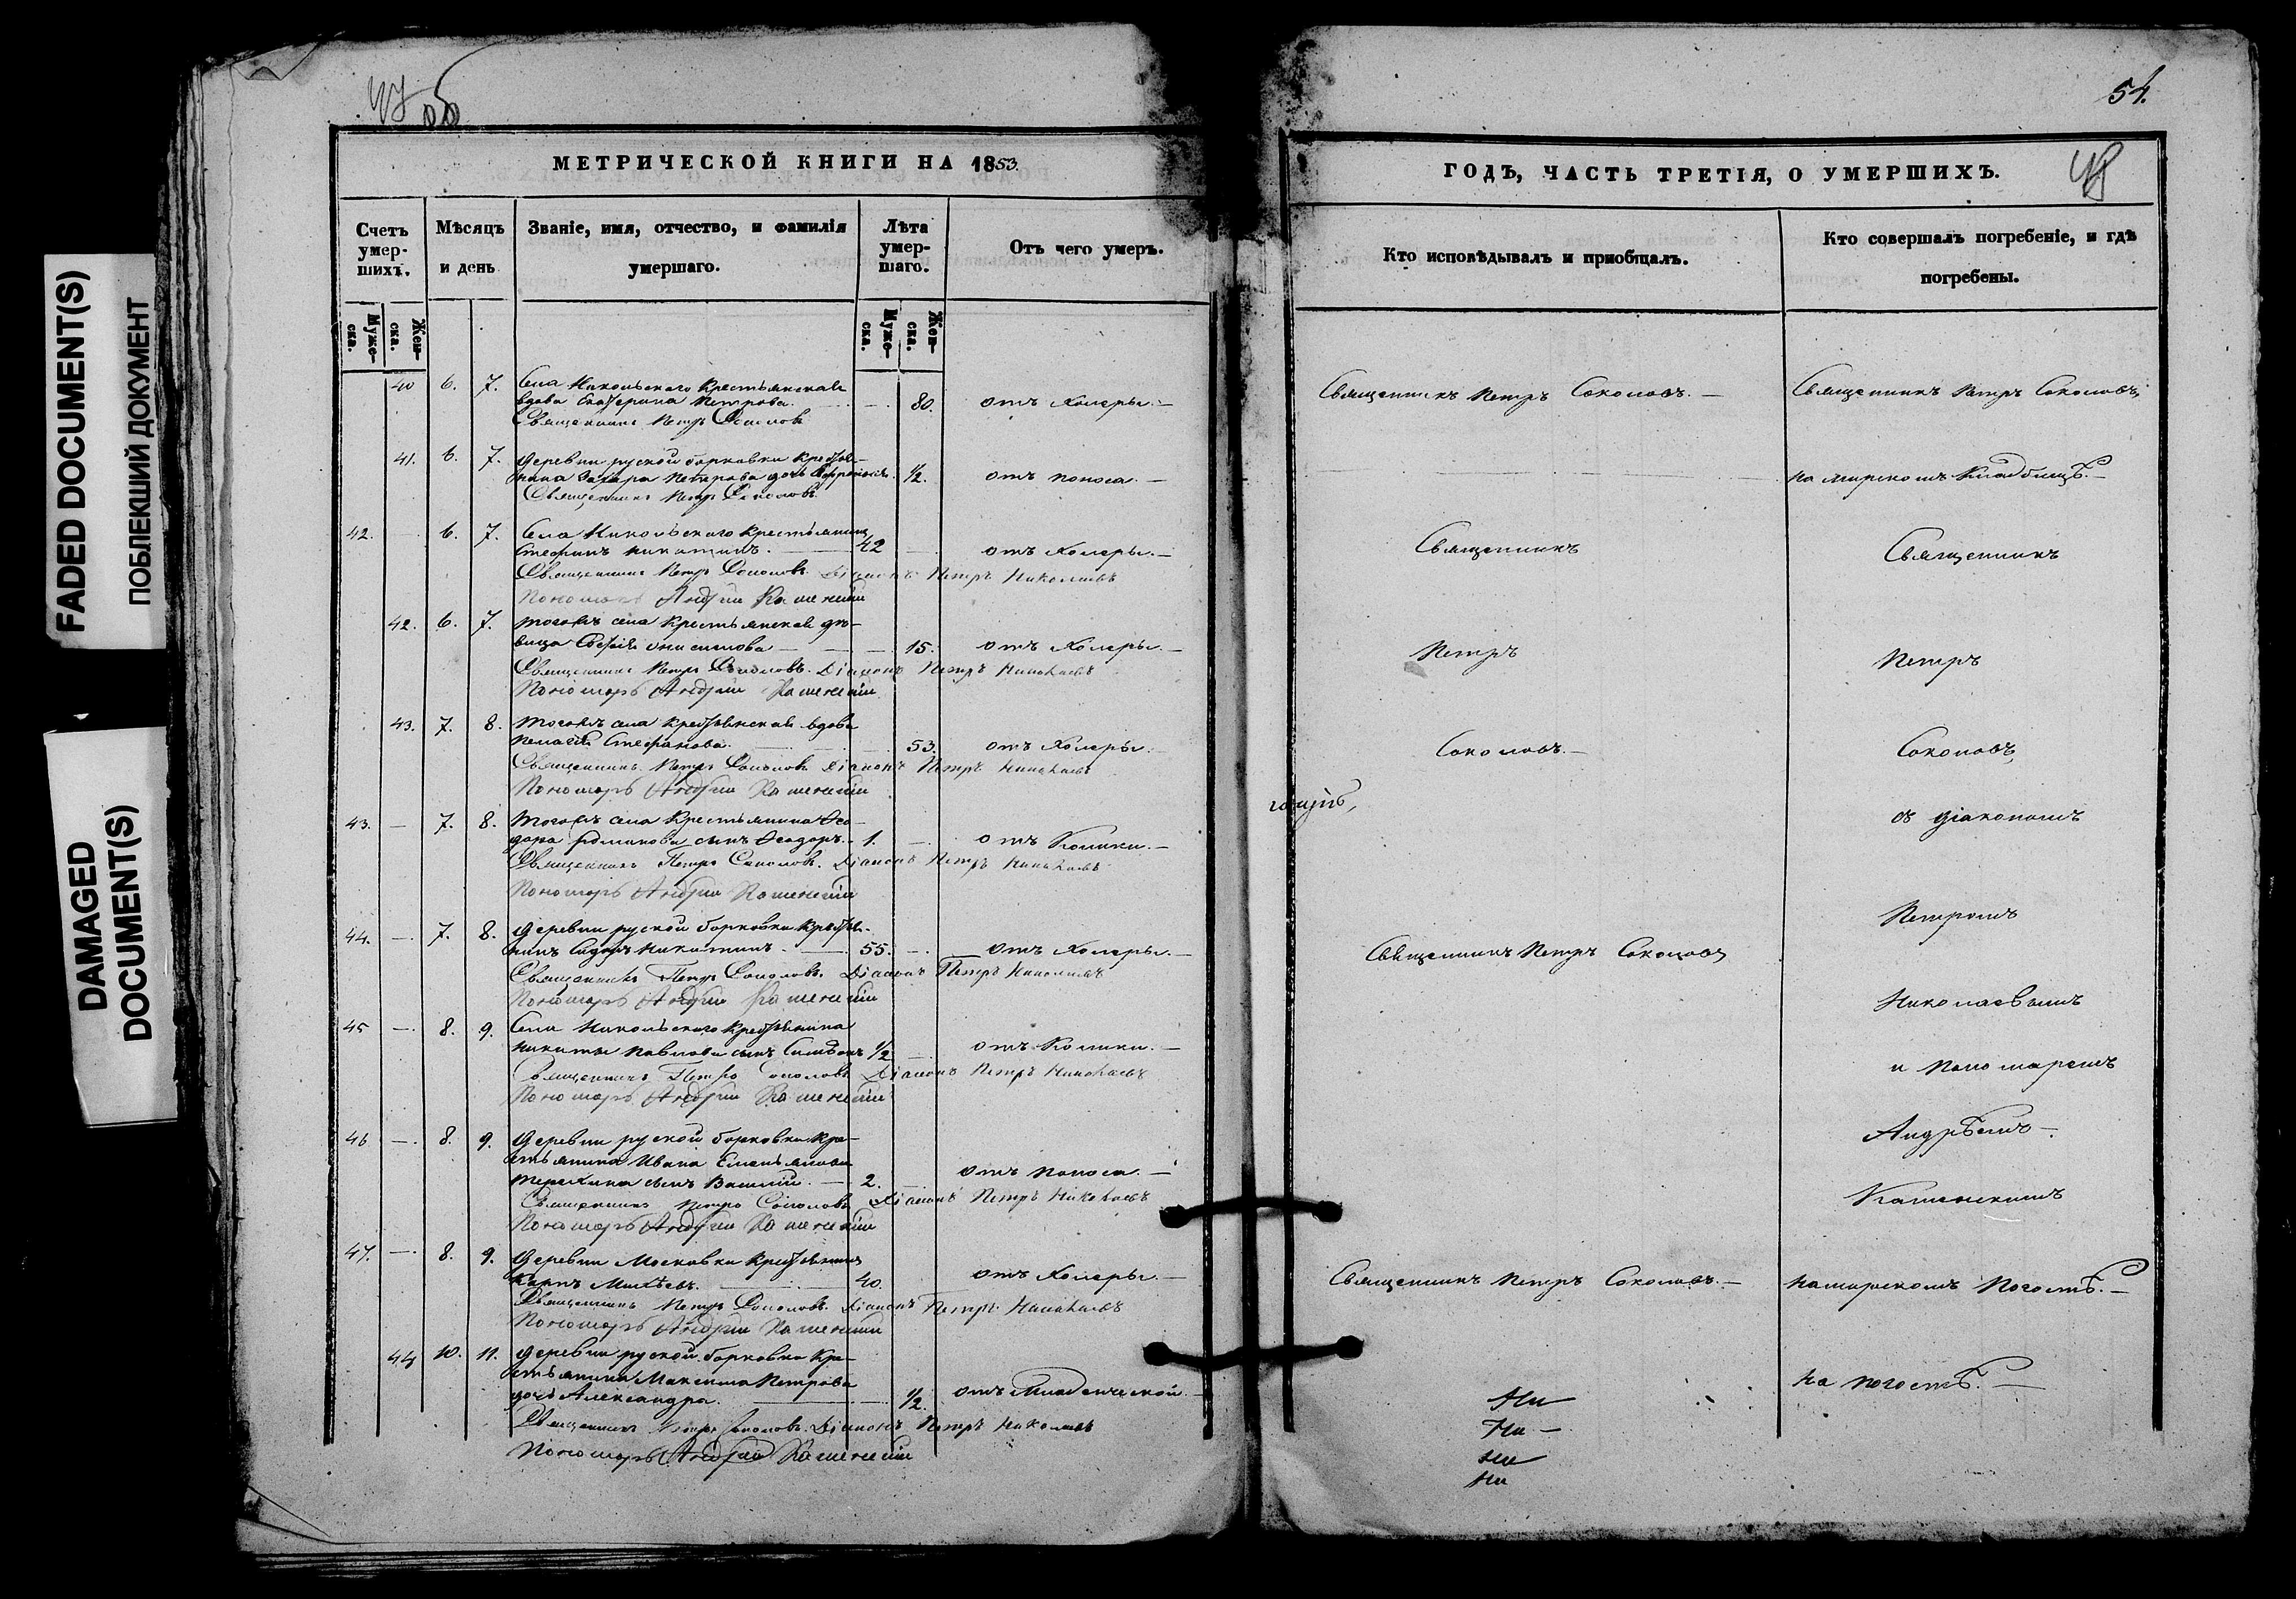 FADED DOCUMENT(S)
ПОБЛЕКШИЙ ДОКУМЕНТ
DAMAGED
DOCUMENT(S)
54.
МЕТРИЧЕСКОЙ КНИГИ НА 1853.
Счетъ умер-шихъ.
Мѣсяцъ и день
Званіе, имя, отчество, и фамилія умершаго.
Лѣта умер-шаго.
Отъ чего умеръ.
Муже-ска.
Жен-ска.
Муже-ска.
Жен-ска.
40 6. 7. Села Никольскаго Крестьянская
вдова Екатерина Петрова. 80. отъ Холеры.
Священникъ Петръ Соколовъ
41. 6. 7. деревни руской борковки крестья-
нина Захара Петрова дочь 1/2. отъ поноса.
Священникъ Петръ Соколовъ
42. 6. 7. Села Никольскаго Крестьянинъ
Стефанъ Никитинъ. 42 отъ Холеры.
Священникъ Петръ Соколовъ Діаконъ Петръ Николаевъ
Пономарь Андрей Каменскій
42. 6. 7. тогожъ села Крестьянская дѣ-
вица Онисимова 15. отъ Холеры.
Священникъ Петръ Соколовъ. Діаконъ Петръ Николаевъ
Пономарь Андрей Каменскій
43. 7. 8. тогожъ села Крестьянская вдова
Пелагія Стефанова. 53. отъ Холеры.
Священникъ Петръ Соколовъ Діаконъ Петръ Николаевъ
Пономарь Андрей Каменскій
43. 7. 8. тогожъ села Крестьянина Ѳео-
дора Романова сынъ Ѳеодоръ. 1. отъ Колики.
Священникъ Петръ Соколовъ. Діаконъ Петръ Николаевъ
Пономарь Андрей Каменскій
44. 7. 8. деревни руской борковки крестья-
нинъ Сидоръ Никитинъ 55. отъ Холеры.
Священникъ Петръ Соколовъ. Діаконъ Петръ Николаевъ
Пономарь Андрей Каменскій
45 8. 9. Села Никольскаго Крестьянина
Никиты Павлова сынъ Симеонъ 1/2 отъ Колики.
Священникъ Петръ Соколовъ Діаконъ Петръ Николаевъ
Пономарь Андрей Каменскій
46 8. 9. деревни руской борковки Кре-
стьянина Ивана Емельянова
сынъ Василій. 2. отъ поноса.
Священникъ Петръ Соколовъ Діаконъ Петръ Николаевъ
Пономарь Андрей Каменскій
47. 8. 9. деревни Московки Крестьянинъ
Карпъ Михѣевъ. 40. отъ Холеры.
Священникъ Петръ Соколовъ. Діаконъ Петръ Николаевъ
Пономарь Андрей Каменскій
44 10. 11. деревни руской борковки Кре-
стьянина Максима Петрова
дочь Александра. 1/2. отъ Младенческой.
Священникъ Петръ Соколовъ. Діаконъ Петръ Николаевъ
Пономарь Андрей Каменскій
ГОДЪ, ЧАСТЬ ТРЕТІЯ, О УМЕРШИХЪ.
Кто исповѣдывалъ и приобщалъ.
Кто совершалъ погребеніе, и гдѣ погребены.
Священникъ Петръ Соколовъ.
Священникъ Петръ Соколовъ
на мирскомъ Кладбищѣ.
Священникъ
Священникъ
Петръ
Петръ
Соколовъ.
Соколовъ
съ діакономъ
Петромъ
Священникъ Петръ Соколовъ
Николаевымъ
и пономаремъ
Андрѣемъ
Каменскимъ
Священникъ Петръ Соколовъ.
на мирскомъ погостѣ.
на погостѣ.